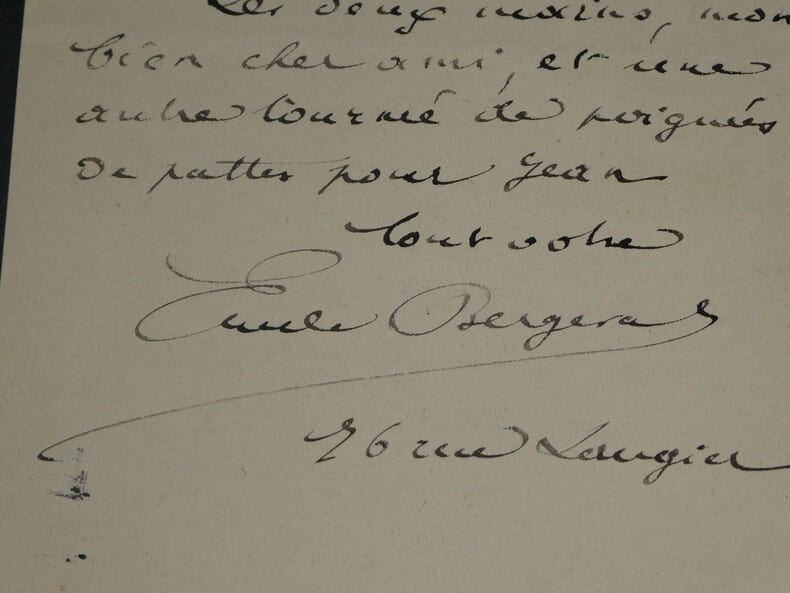 Les deux mains, mon
bien cher ami, et une
autre tournée de poignées
de pattes pour Jean
tout votre
Emile Bergerat
26 rue Laugier